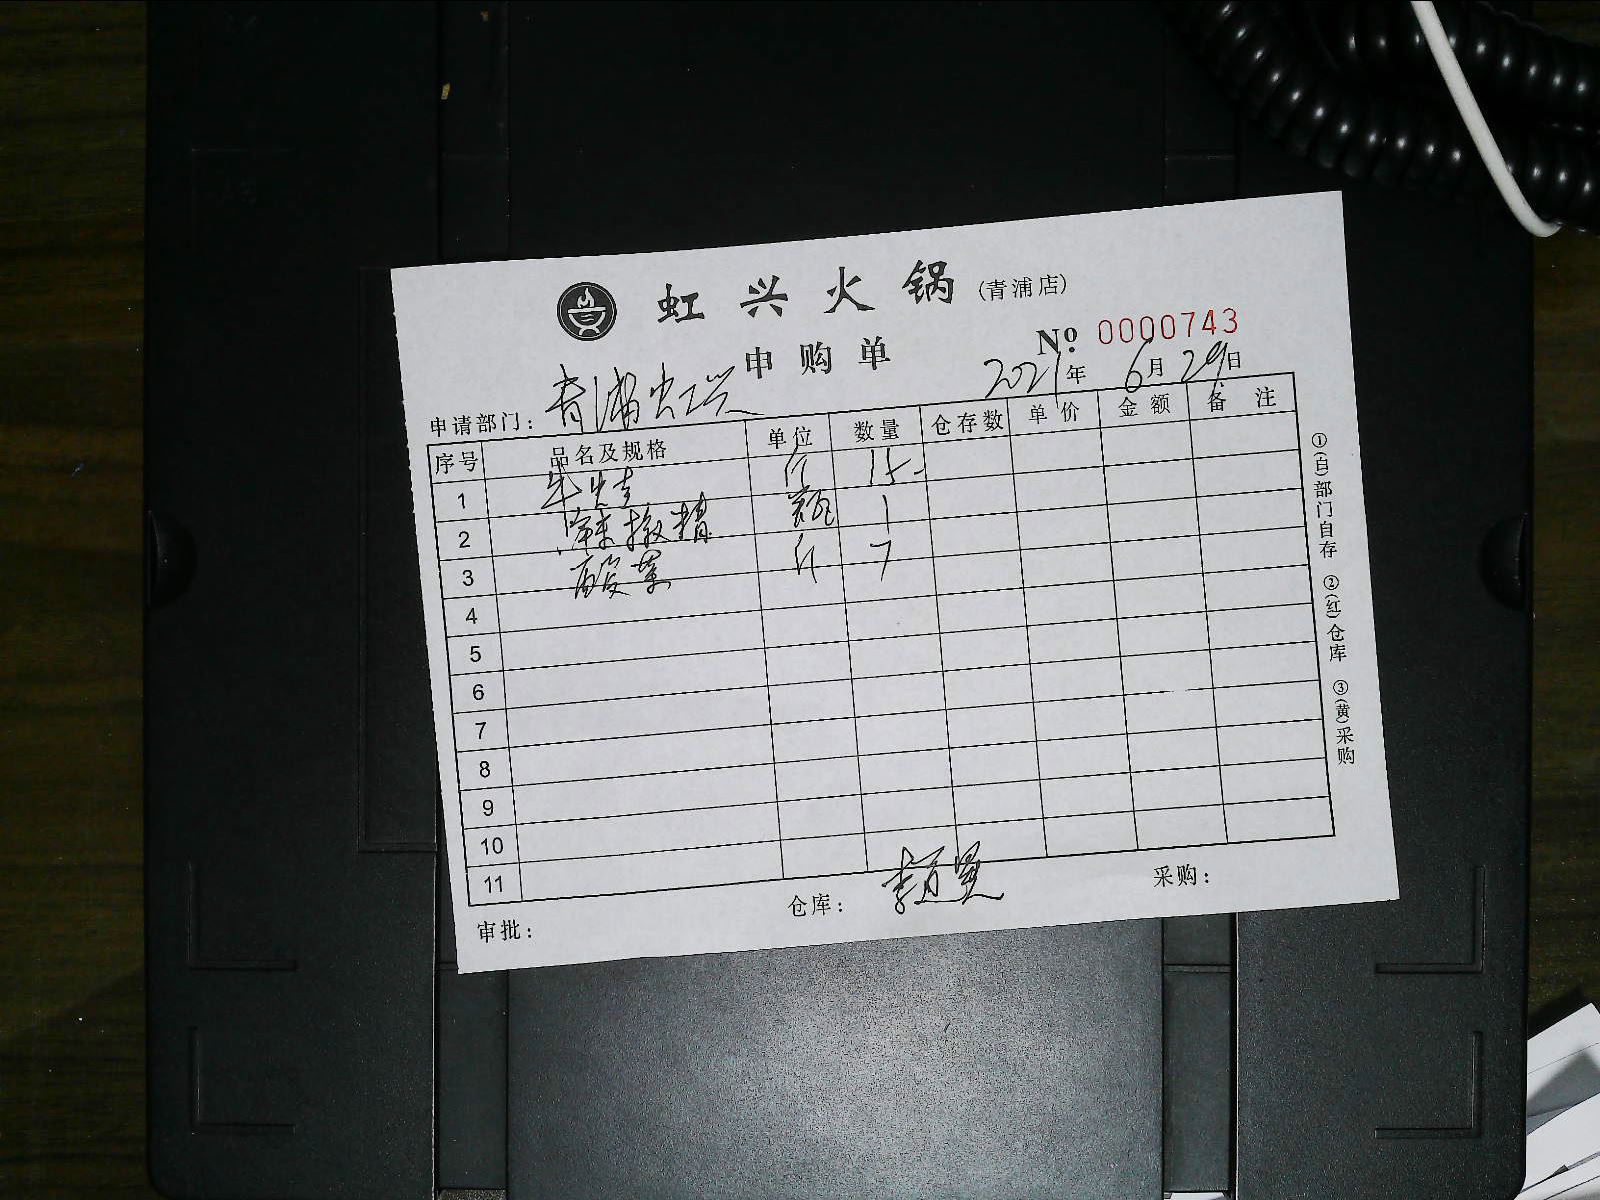 虹兴火锅(青浦店)
申购单
№ 0000743
2021年6月29日
申请部门：青浦虹兴
序号 品名及规格 单位 数量 仓存数 单价 金额 备注
1 斤 15-
2 辣椒精 瓶 1
3 酸菜 斤 7
4
5
6
7
8
9
10
11
审批： 仓库：李 采购：
①(白)部门自存 ②(红)仓库 ③(黄)采购